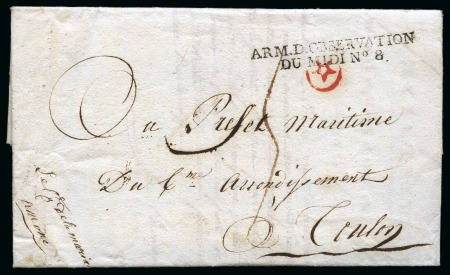 ARM. D'OBSERVATION
DU MIDI Nº 8.
5
Au Préfet Maritime
Du 6me Arrondissement
Toulon